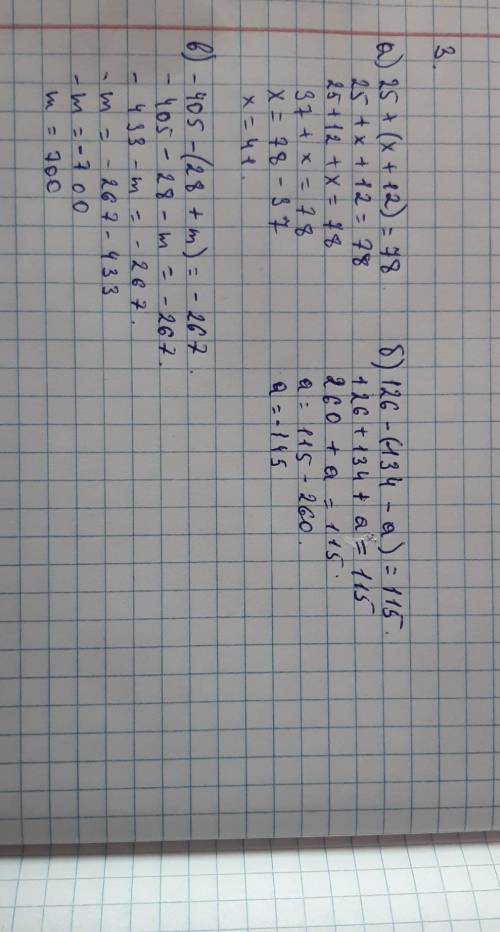 3.
а) 25 + (x + 12) = 78
25 + x + 12 = 78
25 + 12 + x = 78
37 + x = 78
x = 78 - 37
x = 41.
б) 126 - (134 - a) = 115.
126 + 134 + a = 115
260 + a = 115.
a = 115 - 260.
a = -145
в) - 405 - (28 + m) = - 267.
- 405 - 28 - m = - 267.
- 433 - m = - 267.
- m = - 267 - 433
- m = - 700
m = 700